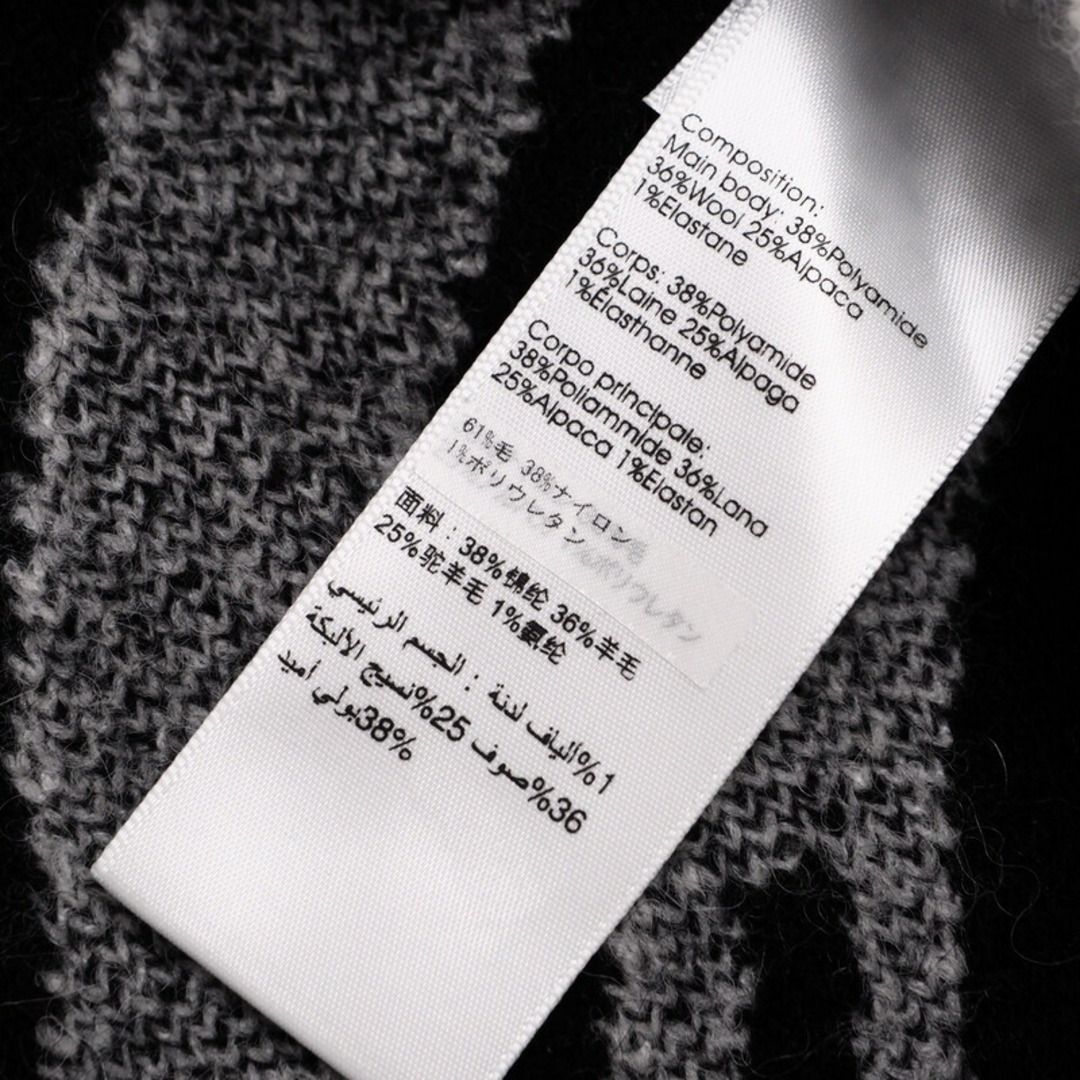 Composition:
Main body: 38%Polyamide
36%Wool 25%Alpaca
1%Elastane
Corps: 38%Polyamide
36%Laine 25%Alpaga
1%Élasthanne
Corpo principale:
38%Poliammide 36%Lana
25%Alpaca 1%Elastan
61%毛 38%ナイロン
1%ポリウレタン
%ポリウレタン
面料：38%锦纶 36%羊毛
25%驼羊毛 1%氨纶
الجسم الرئيسي : 1%ألياف لدنة
36%صوف 25%نسيج الأليكة
38%بولي أميد